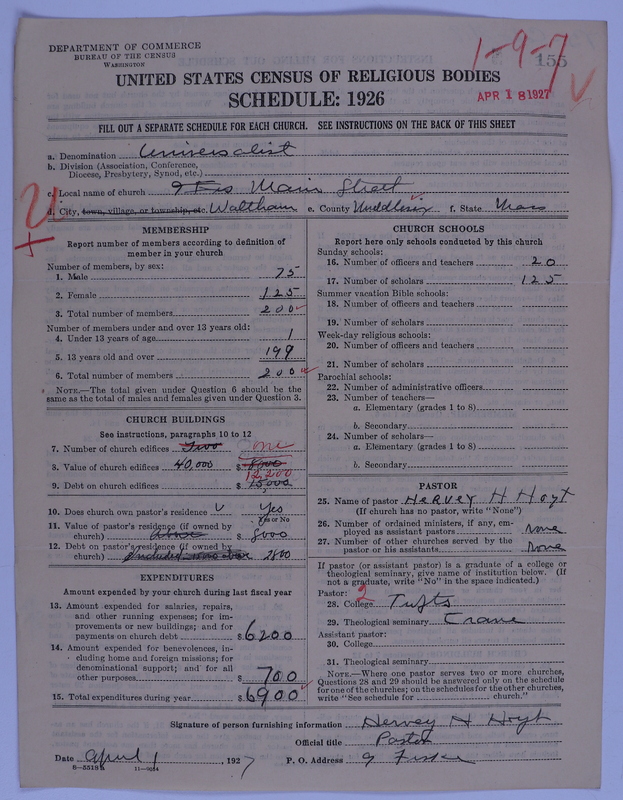 DEPARTMENT OF COMMERCE
BUREAU OF THE CENSUS
WASHINGTON
1-9-7
155
UNITED STATES CENSUS OF RELIGIOUS BODIES
SCHEDULE: 1926
APR 18 1927
FILL OUT A SEPARATE SCHEDULE FOR EACH CHURCH. SEE INSTRUCTIONS ON THE BACK OF THIS SHEET
a. Denomination Universalist
b. Division (Association, Conference,
Diocese, Presbytery, Synod, etc.)
c. Local name of church Main Street
d. City, town, village, or township, etc. Waltham e. County Middlesex f. State Mass
MEMBERSHIP
Report number of members according to definition of
member in your church
Number of members, by sex:
1. Male 75
2. Female 125
3. Total number of members 200
Number of members under and over 13 years old:
4. Under 13 years of age 1
5. 13 years old and over 199
6. Total number of members 200
NOTE.—The total given under Question 6 should be the
same as the total of males and females given under Question 3.
CHURCH BUILDINGS
See instructions, paragraphs 10 to 12
7. Number of church edifices Two one
8. Value of church edifices 40,000 $
12,200
9. Debt on church edifices $ 15,000
10. Does church own pastor's residence Yes
Yes or No
11. Value of pastor's residence (if owned by
church) above $ 8000
12. Debt on pastor's residence (if owned by
church) Included 2800
EXPENDITURES
Amount expended by your church during last fiscal year
13. Amount expended for salaries, repairs,
and other running expenses; for im-
provements or new buildings; and for
payments on church debt $ 6200
14. Amount expended for benevolences, in-
cluding home and foreign missions; for
denominational support; and for all
other purposes $ 700
15. Total expenditures during year $ 6900
CHURCH SCHOOLS
Report here only schools conducted by this church
Sunday schools:
16. Number of officers and teachers 20
17. Number of scholars 125
Summer vacation Bible schools:
18. Number of officers and teachers
19. Number of scholars
Week-day religious schools:
20. Number of officers and teachers
21. Number of scholars
Parochial schools:
22. Number of administrative officers
23. Number of teachers—
a. Elementary (grades 1 to 8)
b. Secondary
24. Number of scholars—
a. Elementary (grades 1 to 8)
b. Secondary
PASTOR
25. Name of pastor Hervey H Hoyt
(If church has no pastor, write "None")
26. Number of ordained ministers, if any, em-
ployed as assistant pastors None
27. Number of other churches served by the
pastor or his assistants None
If pastor (or assistant pastor) is a graduate of a college or
theological seminary, give name of institution below. (If
not a graduate, write "No" in the space indicated.)
Pastor: 2
28. College Tufts
29. Theological seminary Crane
Assistant pastor:
30. College
31. Theological seminary
NOTE.—Where one pastor serves two or more churches,
Questions 28 and 29 should be answered only on the schedule
for one of the churches; on the schedules for the other churches,
write "See schedule for church."
Signature of person furnishing information Hervey H Hoyt
Official title Pastor
Date April 1, 1927 P. O. Address 9 Fiske
8—5518 a 11—9054